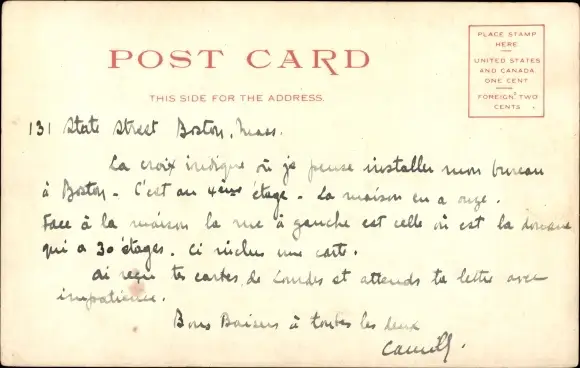 POST CARD
THIS SIDE FOR THE ADDRESS.
PLACE STAMP
HERE
UNITED STATES
AND CANADA
ONE CENT
FOREIGN TWO
CENTS
131 State Street Boston, Mass.
La croix indique où je pense installer mon bureau
à Boston - C'est au 4ème étage - La maison en a onze.
Face à la maison la rue à gauche est celle où est la douane
qui a 30 étages. Ci inclus une carte.
Ai reçu tes cartes de Lourdes et attends ta lettre avec
impatience.
Bons Baisers à toutes les deux